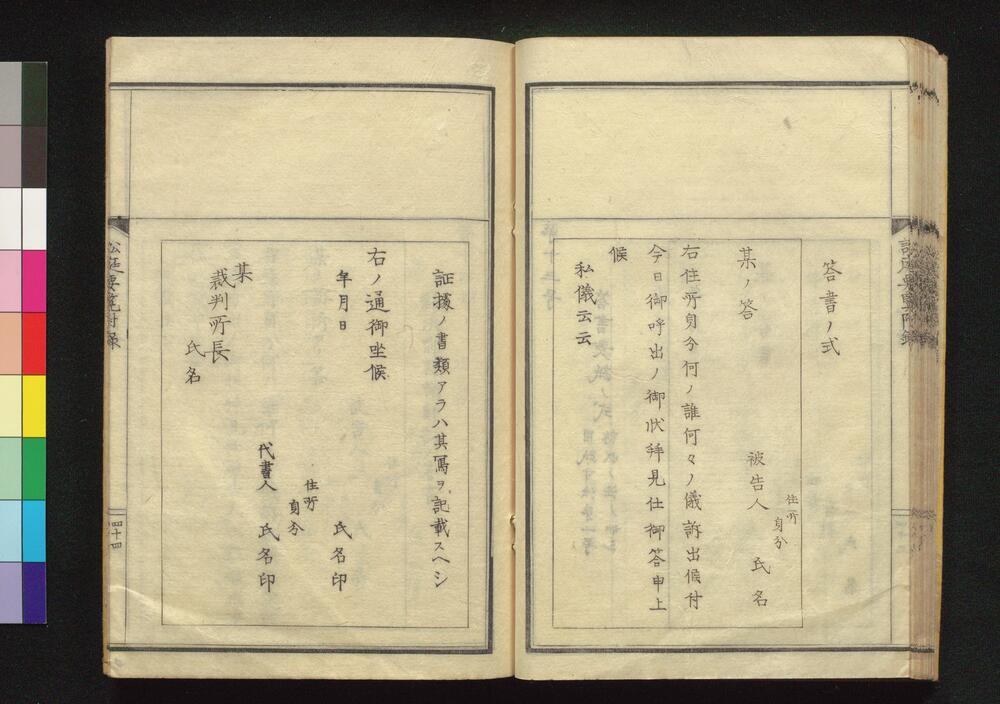 答書ノ式
某ノ答
住所
身分
被告人 氏名
右住所身分何ノ誰何々ノ儀訴出候付
今日御呼出ノ御状拝見仕御答申上
候
私儀云云
証據ノ書類アラハ其寫ヲ記載スヘシ
右ノ通御坐候
年月日
氏名印
住所
身分
代書人 氏名印
某
裁判所長
氏名
四十四